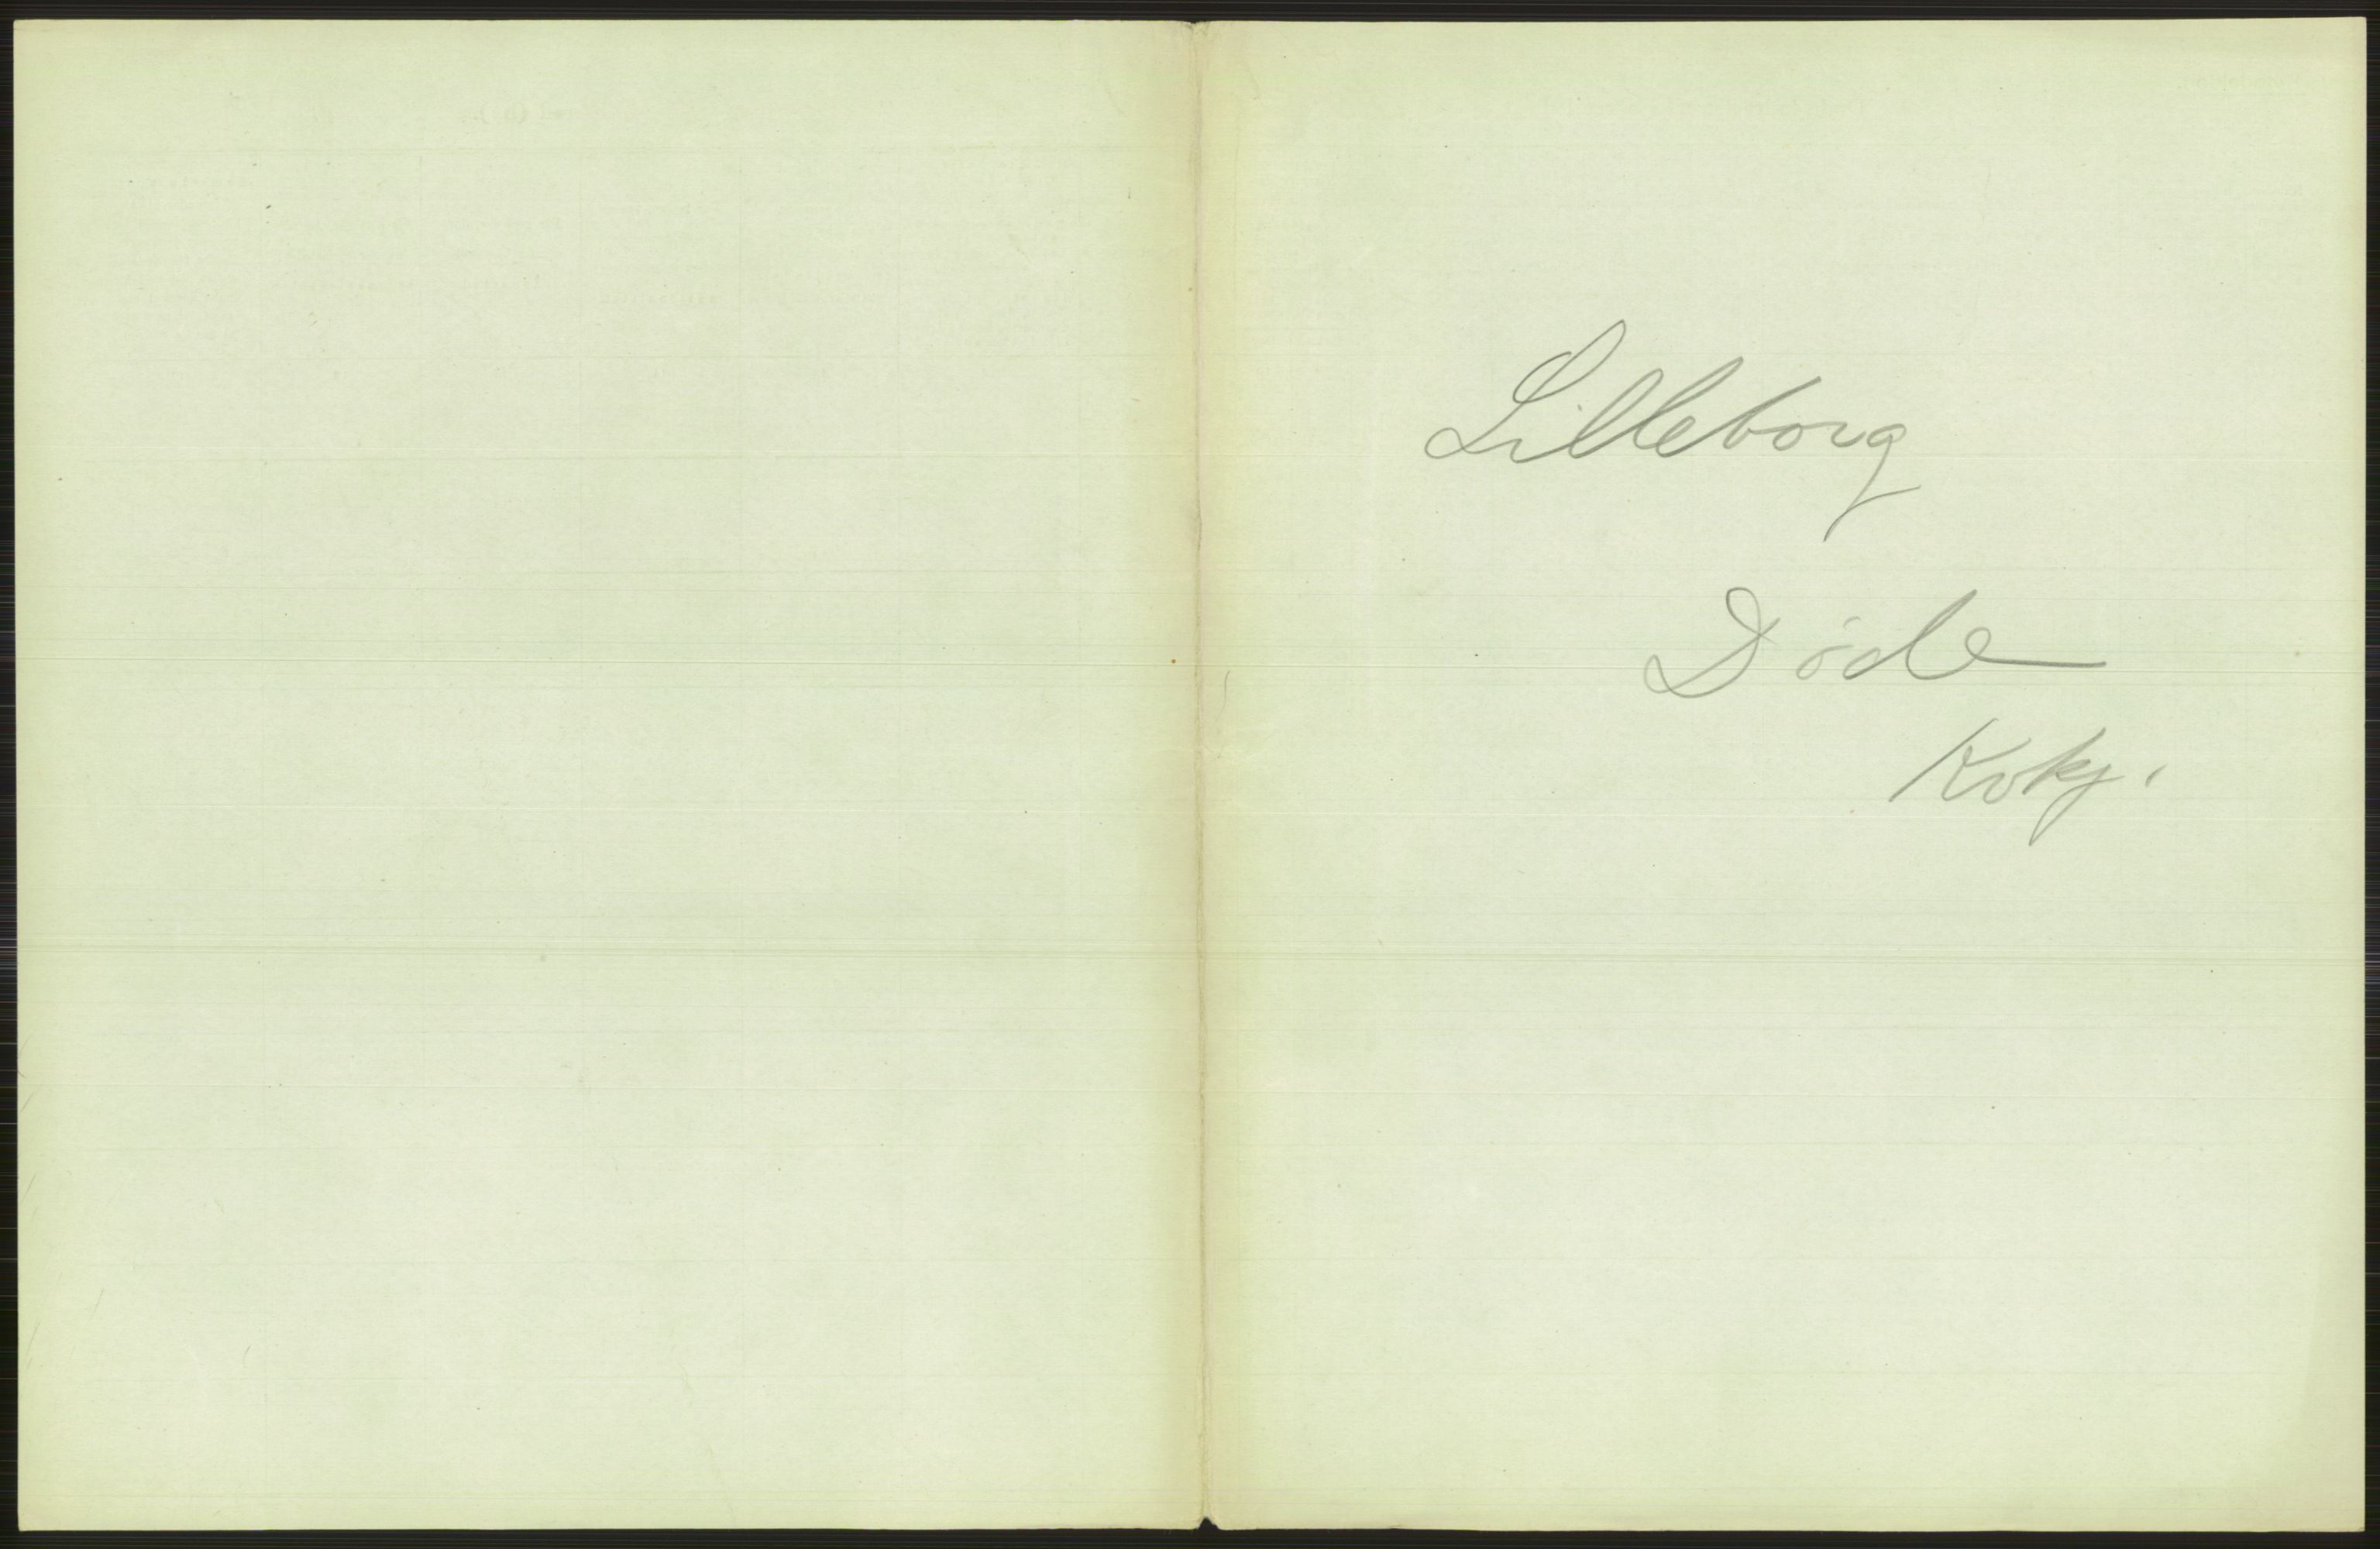 Lilleborg
Døde
Kvkj.